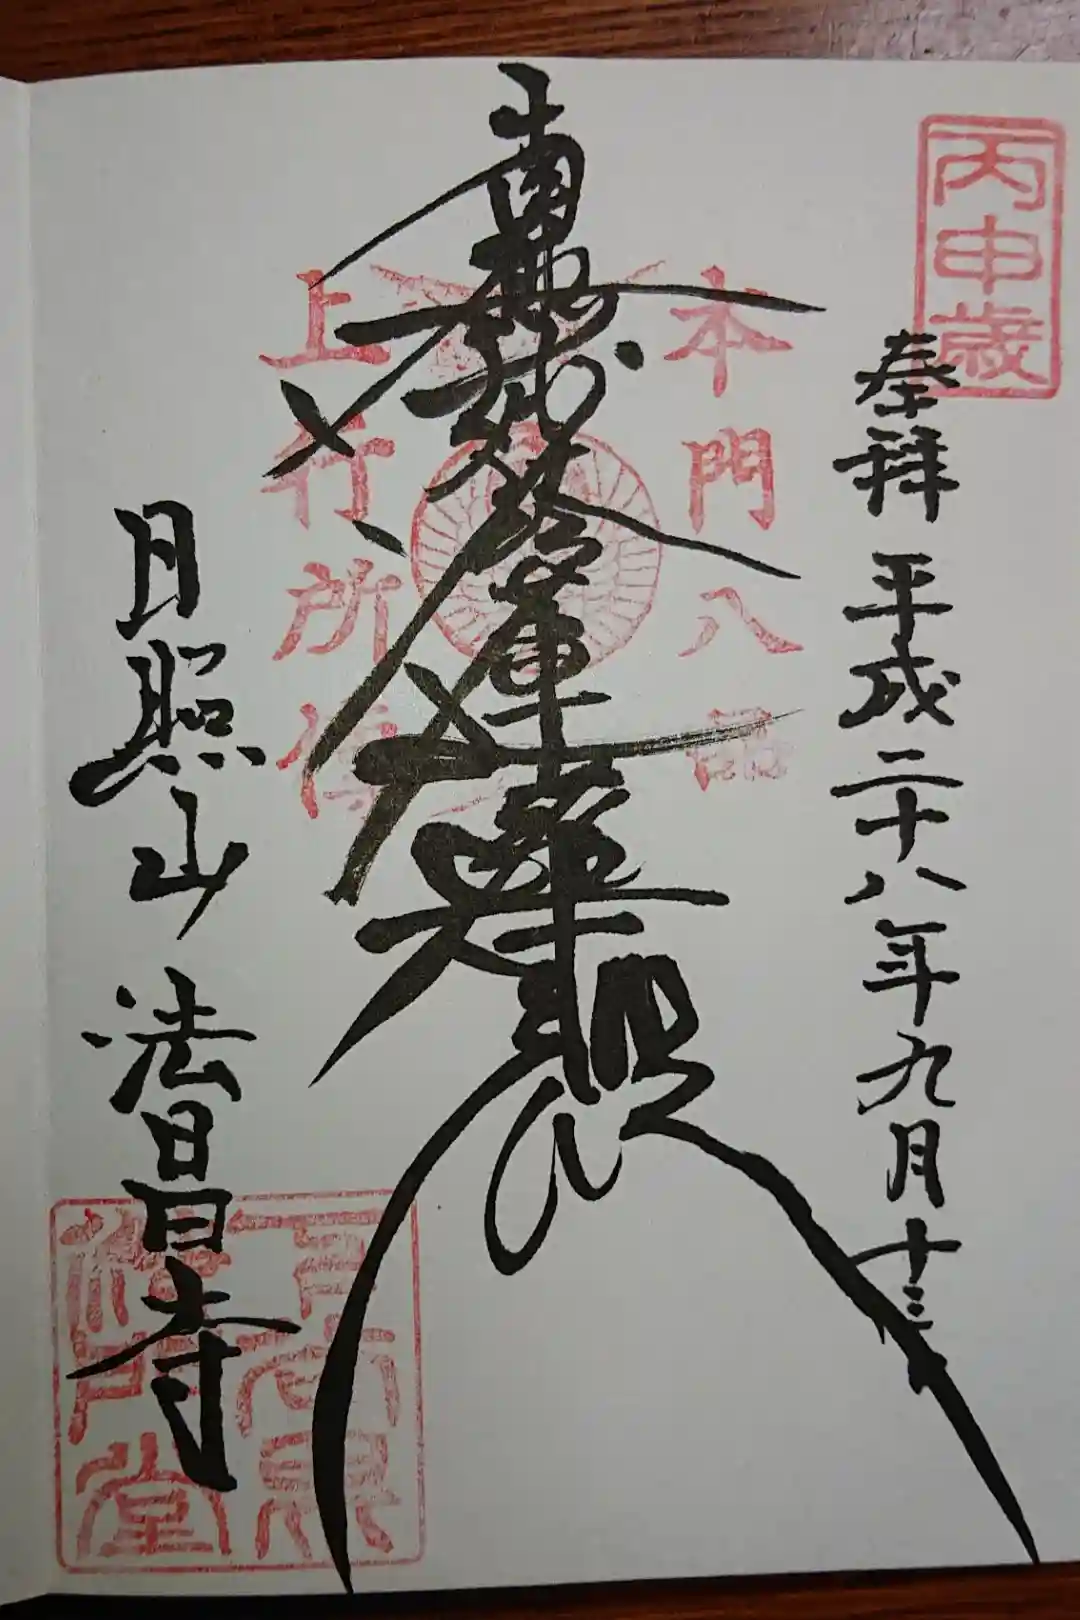 丙申歳
奉拝 平成二十八年九月十三
本門八品
南無妙法蓮華経
上行所伝
日照山 法昌寺